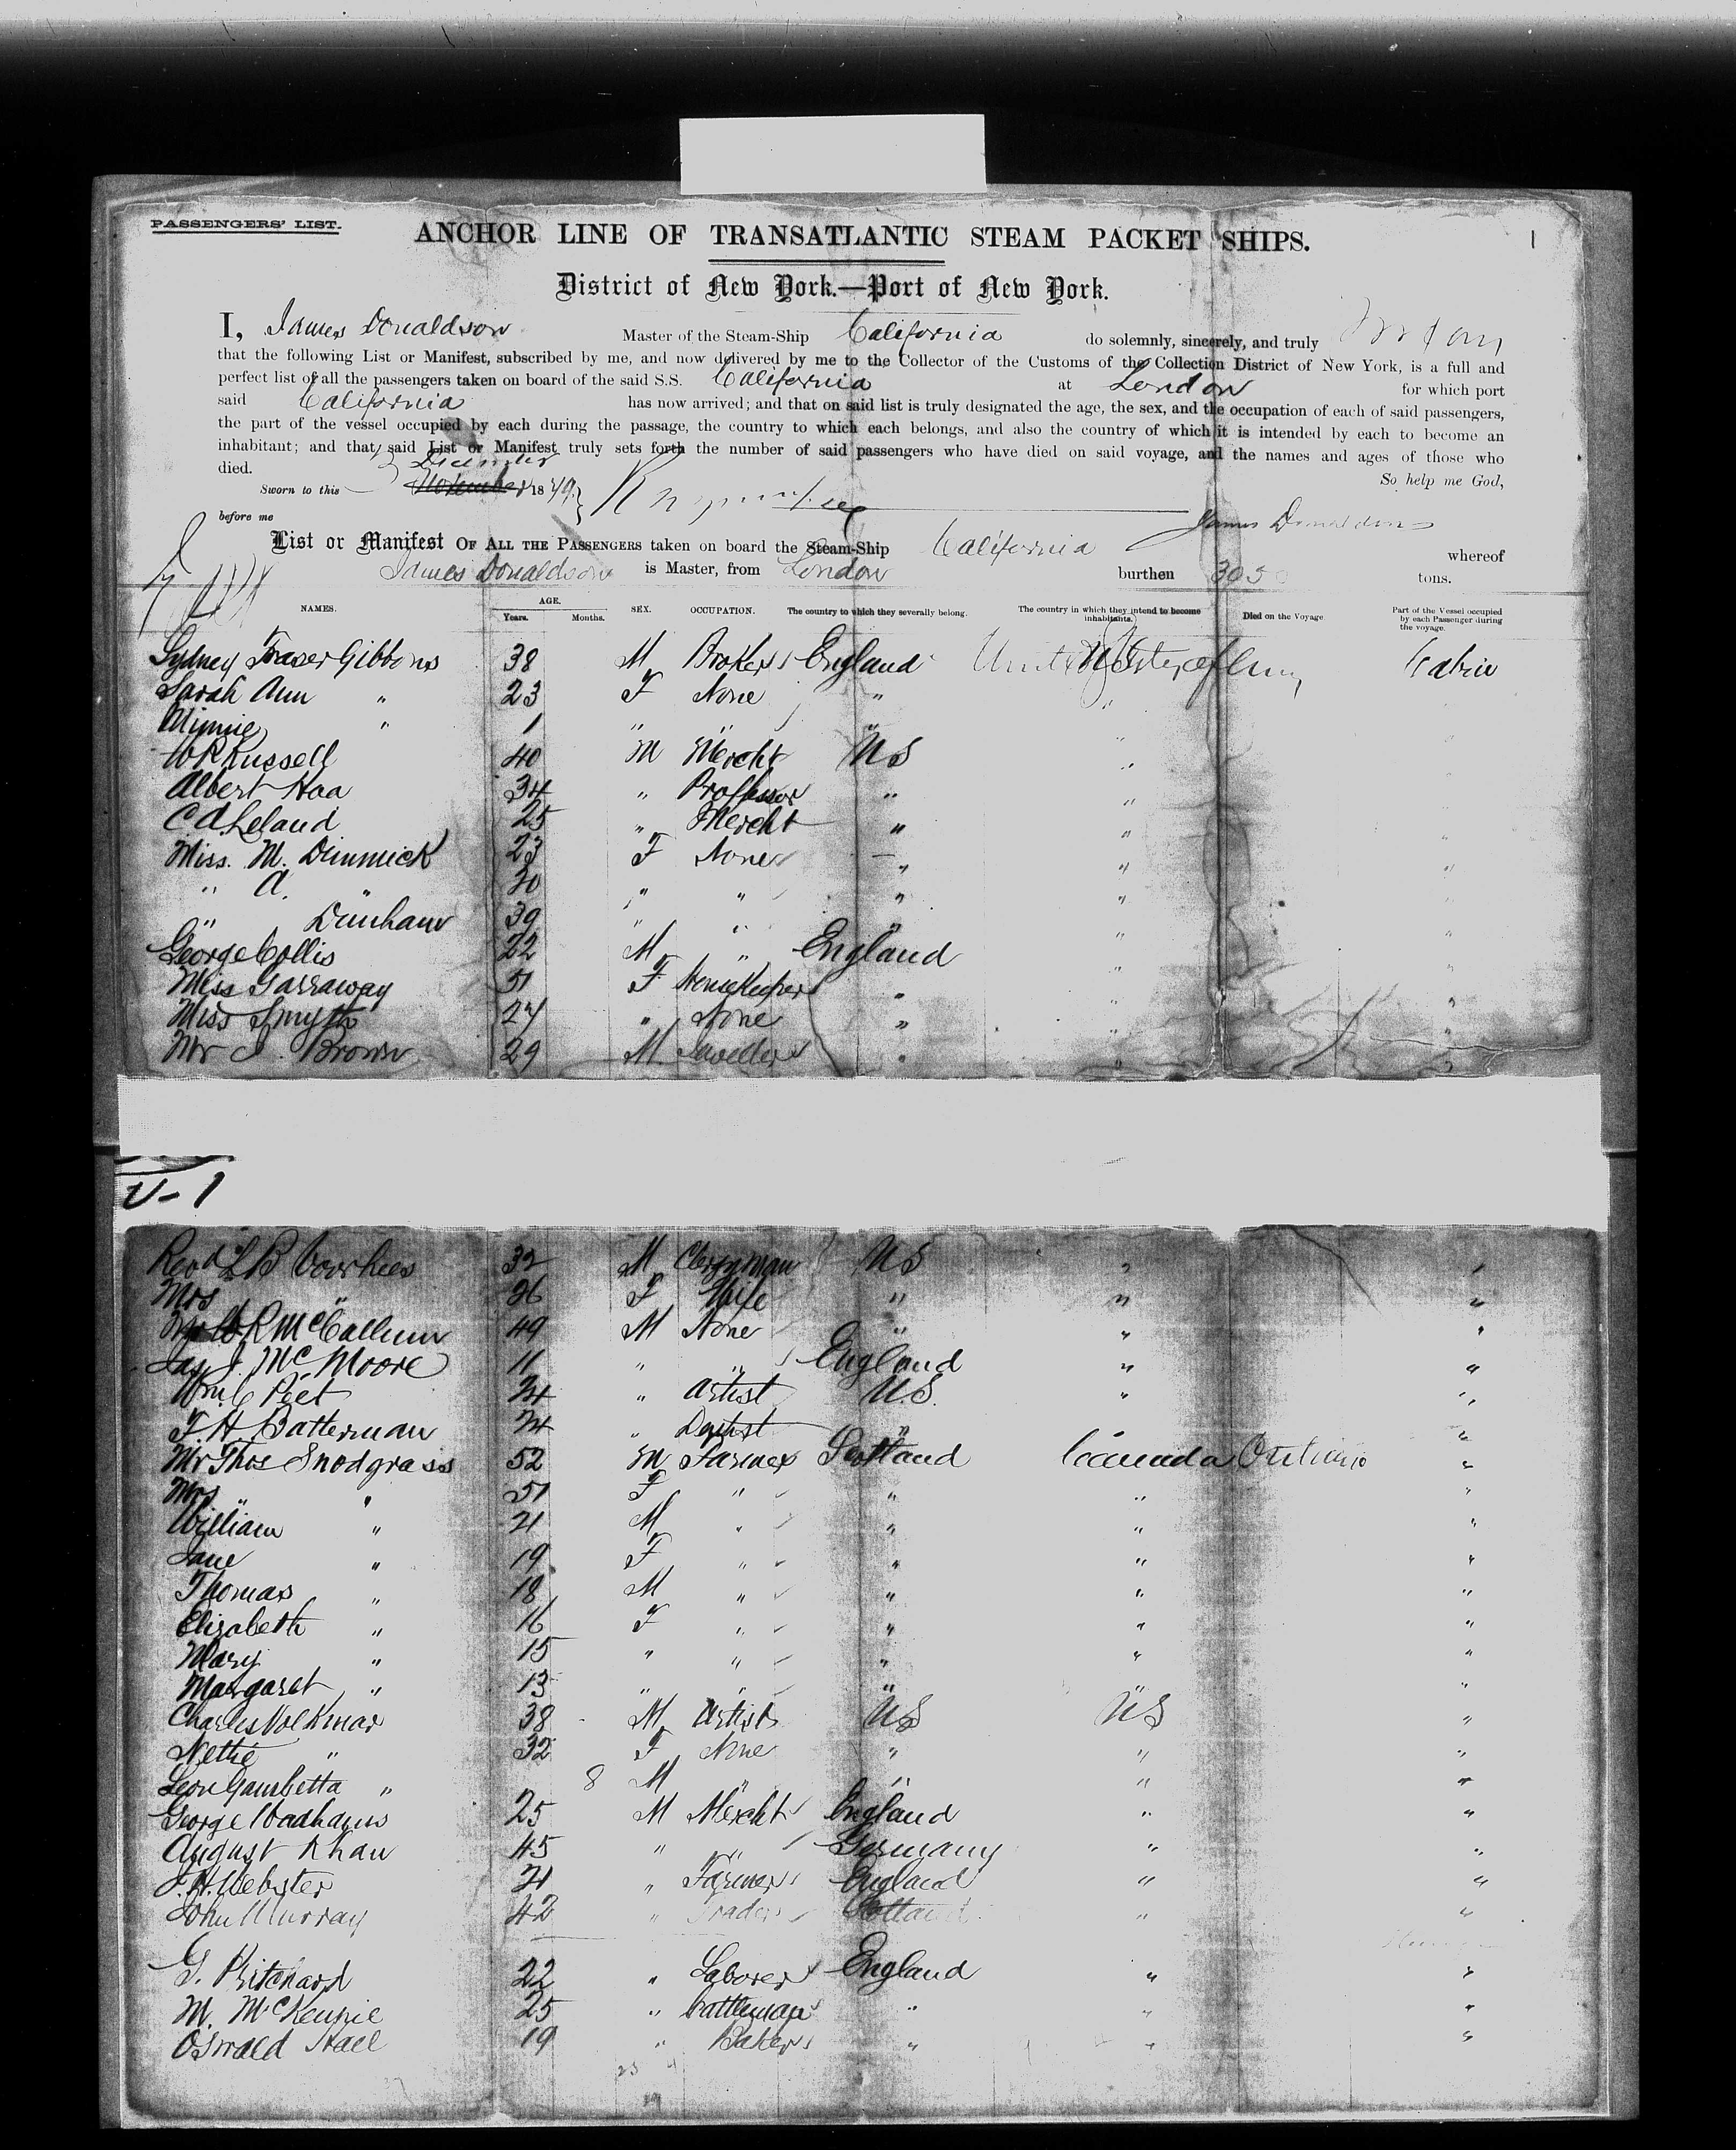 PASSENGERS' LIST.
ANCHOR LINE OF TRANSATLANTIC STEAM PACKET SHIPS. 1
District of New York.—Port of New York.
I, James Donaldson Master of the Steam-Ship California do solemnly, sincerely, and truly
that the following List or Manifest, subscribed by me, and now delivered by me to the Collector of the Customs of the Collection District of New York, is a full and
perfect list of all the passengers taken on board of the said S.S. California at London for which port
said California has now arrived; and that on said list is truly designated the age, the sex, and the occupation of each of said passengers,
the part of the vessel occupied by each during the passage, the country to which each belongs, and also the country of which it is intended by each to become an
inhabitant; and that said List or Manifest truly sets forth the number of said passengers who have died on said voyage, and the names and ages of those who
died. December
So help me God,
Sworn to this November 1879
before me James Donaldson
List or Manifest OF ALL THE PASSENGERS taken on board the Steam-Ship California whereof
James Donaldson is Master, from London burthen 305 tons.
NAMES. AGE. Years. Months. SEX. OCCUPATION. The country to which they severally belong. The country in which they intend to become inhabitants. Died on the Voyage Part of the Vessel occupied by each Passenger during the voyage.
Sydney Fraser Gibbons 38 M Broker England Cabin
Sarah Ann " 23 F None " " "
Minnie " 1 " " " " "
W R Russell 40 M Mercht U S " "
Albert Haa 34 " Professor " " "
C A Leland 25 " Mercht " " "
Miss. M. Dimmick 23 F None " " "
" A. " 20 " " " " "
" Dunham 39 " " " " "
George Collis 22 M " England " "
Miss Garraway 51 F Housekeeper " " "
Miss Smyth 24 " None " " "
Mr J. Brown 29 M Jweller " " "
V-1
Revd L B Voorhees 32 M Clergyman U S " "
Mrs " 26 F Wife " " "
W R McCallum 49 M None " " "
Jas J. Mc Moore 11 " " England " "
Wm C Peet 24 " Artist U.S. " "
F. H. Batterman 24 " Dentist " "
Mr Thos Snodgrass 52 M Farmer Scotland Canada Ontario "
Mrs " 51 F " " " "
William " 21 M " " " "
Jane " 19 F " " " "
Thomas " 18 M " " " "
Elizabeth " 16 F " " " "
Mary " 15 " " " " "
Margaret " 13 " " " "
Charles Volkmar 38 M Artist U S U S "
Nettie " 32 F None " " "
Leon Gambetta " 8 M " " " "
George Wadhams 25 M Mercht England " "
August Khan 45 " " Germany " "
J. H. Webster 21 " Farmer England " "
John Murray 42 " Trader Scotland " "
G. Pritchard 22 " Laborer England " "
M. McKenzie 25 " Cattleman " " "
Oswald Hall 19 " Baker " " "